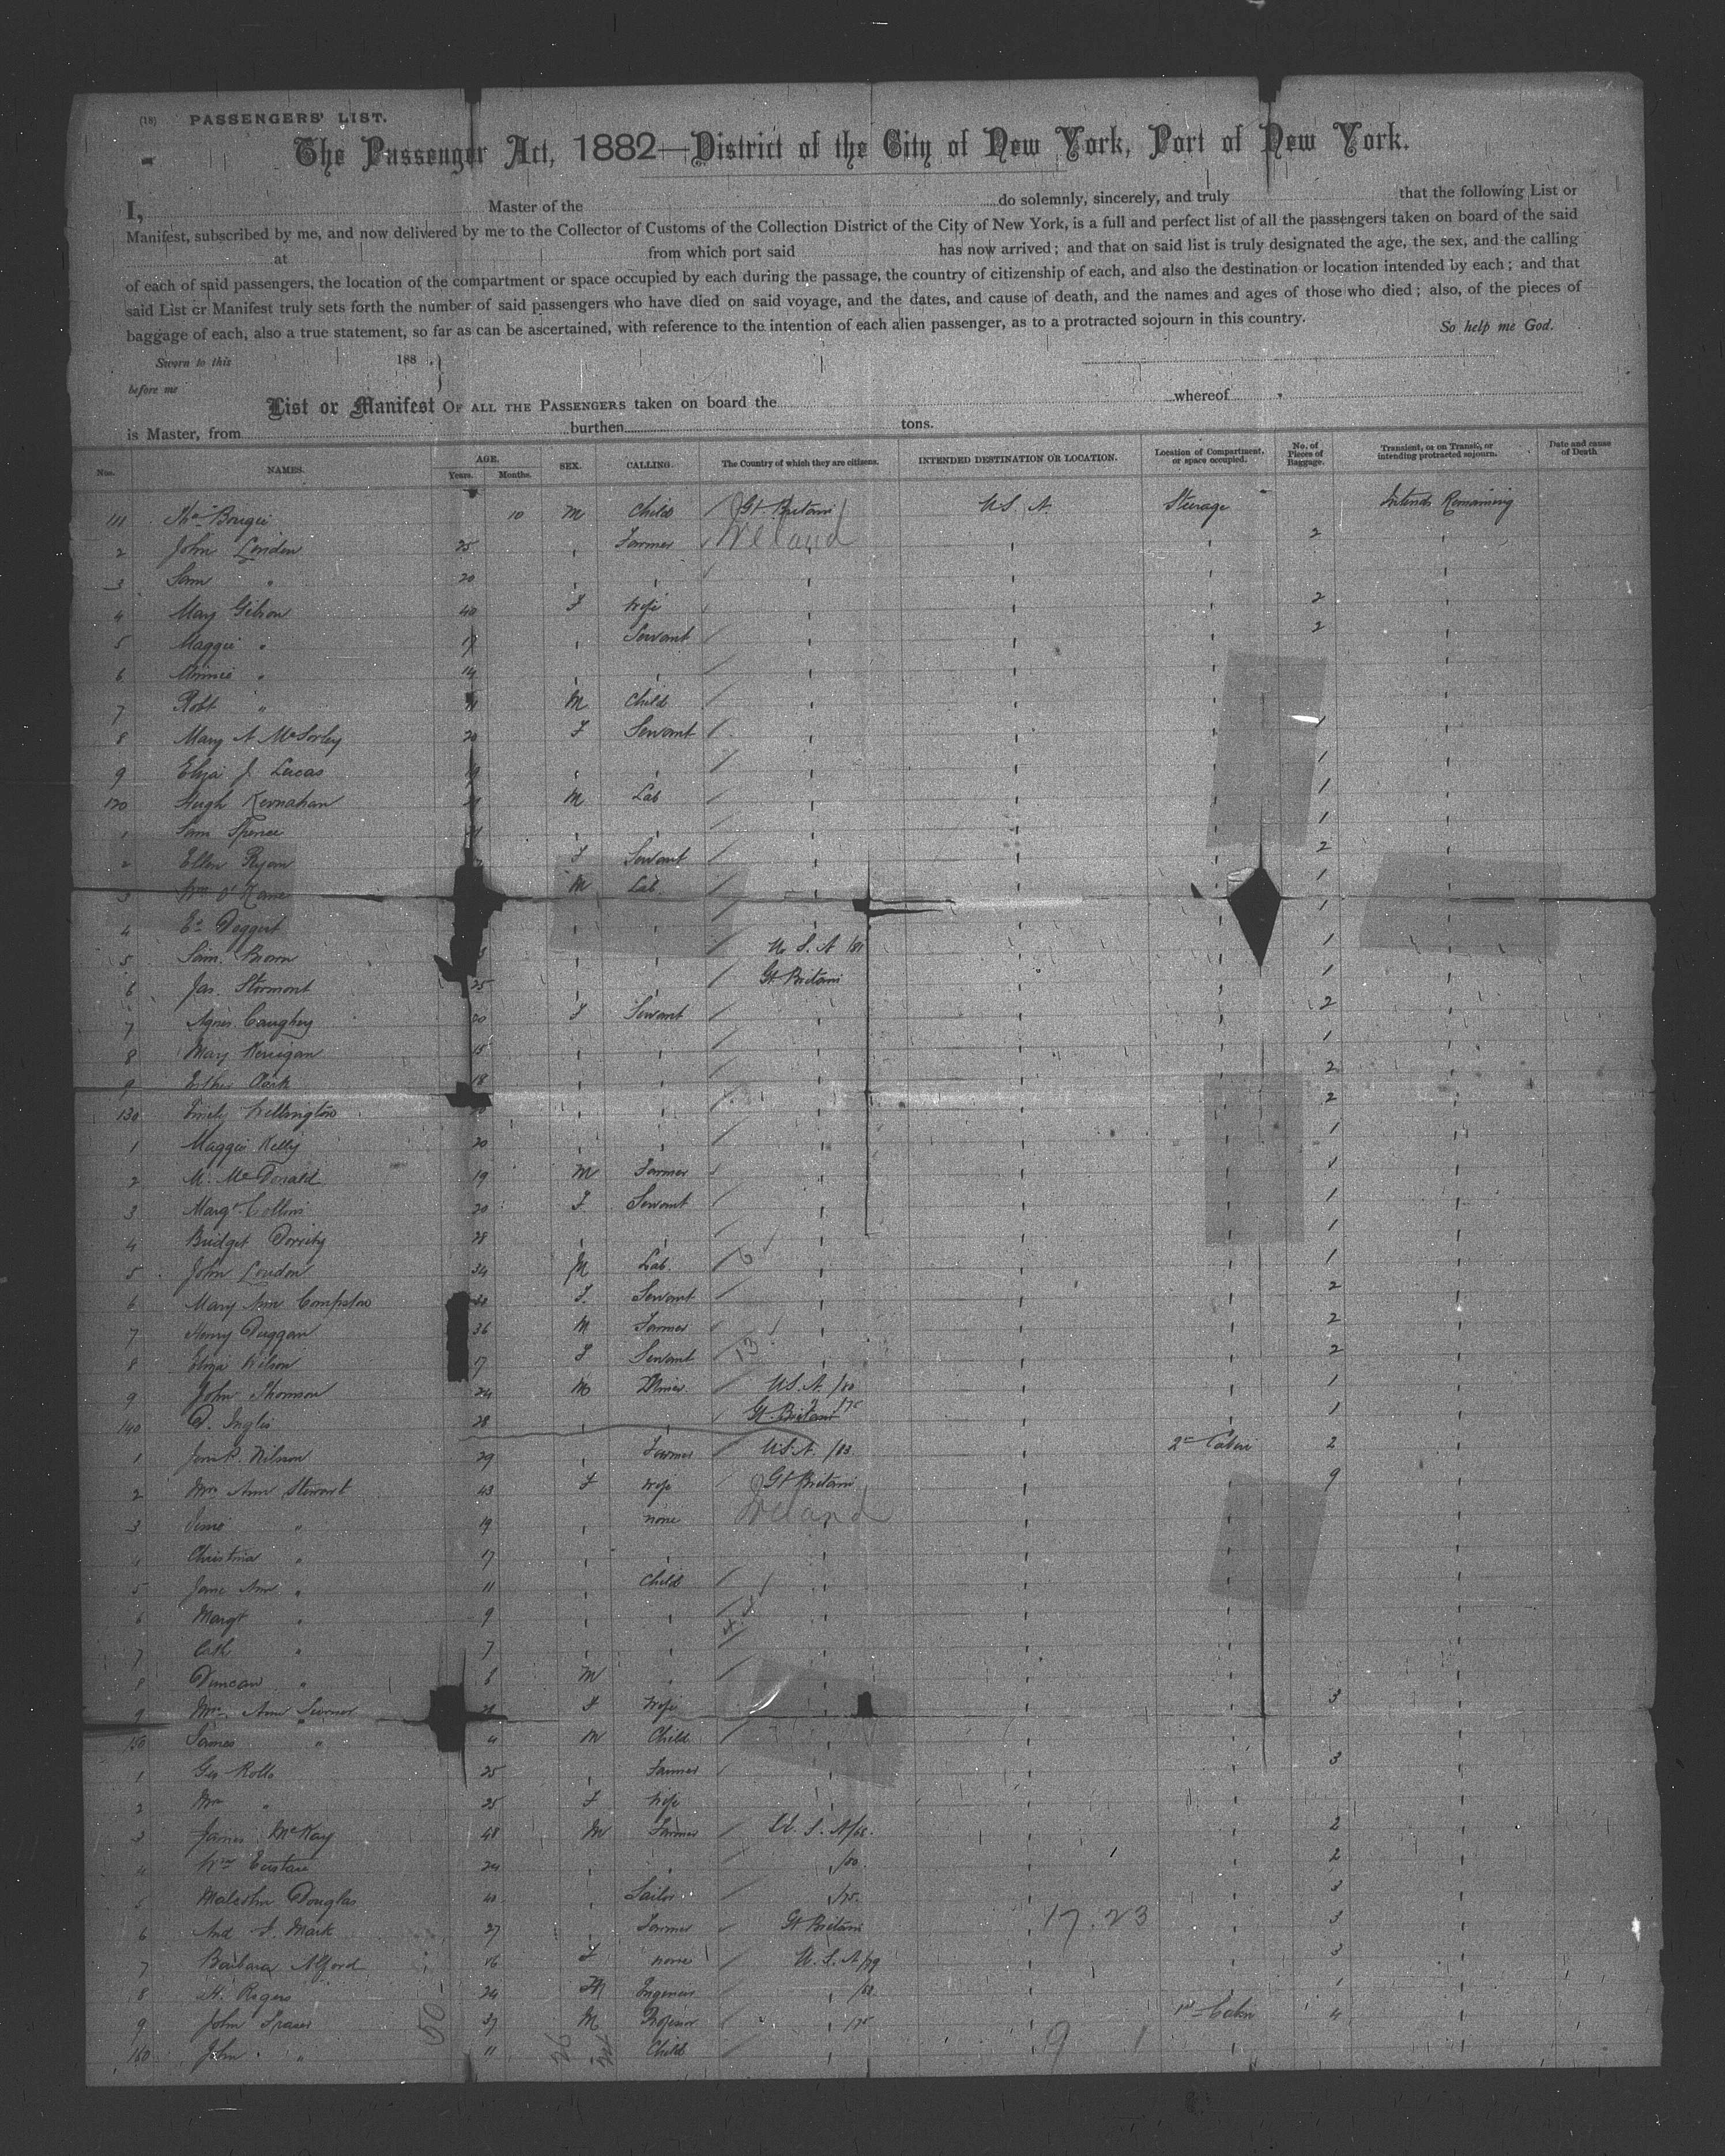 (18) PASSENGERS' LIST.
The Passenger Act, 1882—District of the City of New York, Port of New York.
I, Master of the do solemnly, sincerely, and truly that the following List or
Manifest, subscribed by me, and now delivered by me to the Collector of Customs of the Collection District of the City of New York, is a full and perfect list of all the passengers taken on board of the said
at from which port said has now arrived; and that on said list is truly designated the age, the sex, and the calling
of each of said passengers, the location of the compartment or space occupied by each during the passage, the country of citizenship of each, and also the destination or location intended by each; and that
said List or Manifest truly sets forth the number of said passengers who have died on said voyage, and the dates, and cause of death, and the names and ages of those who died; also, of the pieces of
baggage of each, also a true statement, so far as can be ascertained, with reference to the intention of each alien passenger, as to a protracted sojourn in this country. So help me God.
Sworn to this 188
before me
List or Manifest OF ALL THE PASSENGERS taken on board the whereof
is Master, from burthen tons.
Nos. NAMES. AGE. Years. Months. SEX. CALLING. The Country of which they are citizens. INTENDED DESTINATION OR LOCATION. Location of Compartment, or space occupied. No. of Pieces of Baggage. Transient, or on Transit, or intending protracted sojourn. Date and cause of Death
111 Thos Bougie 10 M Child / Gt Britain U.S.A. Steerage Intends Remaining
2 John 25 " Farmer Ireland " " 2 "
3 Sam " 20 " " " " " "
4 Mary Gibson 40 F Wife " " " 2 "
5 Maggie " 19 " Servant / " " " 2 "
6 Minnie " 14 " " / " " " "
7 Robt " 11 M Child / " " " "
8 Mary A McSorley 20 F Servant / " " " 1 "
9 Eliza J. Lucas 19 " " / " " " 1 "
120 Hugh Kernahan M Lab / " " " 1 "
1 Sam Spence " " / " " " 1 "
2 Ellen Ryan F Servant / " " " 2 "
3 Wm O'Kane M Lab. / " " " 1 "
4 " " / " " " 1 "
5 Sam. Brown " " / U.S.A /81 " " 1 "
6 Jas. Stormont 25 " " / Gt Britain " " 1 "
7 Agnes Caughey 20 F Servant / " " " 2 "
8 Mary Kerrigan 15 " " / " " " 1 "
9 Esther Clark 18 " " / " " " 2 "
130 Emily Wellington " " / " " " 2 "
1 Maggie Kelly 20 " " / " " " 1 "
2 M. McDonald 19 M Farmer " " " 1 "
3 Margt Collins 20 F Servant / " " " 1 "
4 Bridget 28 " " / " " " 1 "
5 John Loudon 34 M Lab. / 6 " " " 1 "
6 Mary Ann Compston F. Servant / " " " 2 "
7 Henry Duggan 36 M Farmer " " " 2 "
8 Eliza Wilson 17 F Servant / 13 " " " 2 "
9 John Thomson 24 M Miner / U.S.A. /80 " " 1 "
140 D. Inglis 28 " " Gt. Britain " " 1 "
1 Wilson 29 " Farmer / U.S.A. /83 " 2nd Cabin 2 "
2 Mrs Ann Stewart 43 F Wife / Gt Britain " " 9 "
3 " 19 " none Ireland " " "
4 Christina " 17 " " " " " "
5 Jane Ann " 11 " Child / " " " "
6 Margt " 9 " " / " " " "
7 Cath " 7 " " / " " " "
8 Duncan " 6 M " / " " " "
9 Mrs Ann F Wife " " " 3 "
150 James " 4 M Child / " " " "
1 Geo Rollo 25 " Farmer / " " " 3 "
2 Mrs " 25 F Wife " " " "
3 James McKay 48 M Farmer / U.S.A/68. " " 2 "
4 Wm Eustace 24 " " / " /80. " " 2 "
5 Malcolm Douglas 40 " Sailor / " /75. " " 3 "
6 And. F. Mark 27 " Farmer Gt Britain 17.23 " " 3 "
7 Barbara Alford 16 F none / U.S.A/79 " " 3 "
8 Rogers 24 M Engineer / " " " 1 "
9 John Fraser 37 M Professor / " /75 " 1st Cabin 4 "
160 John " 11 " Child / " " " "
50 26 24 9 1